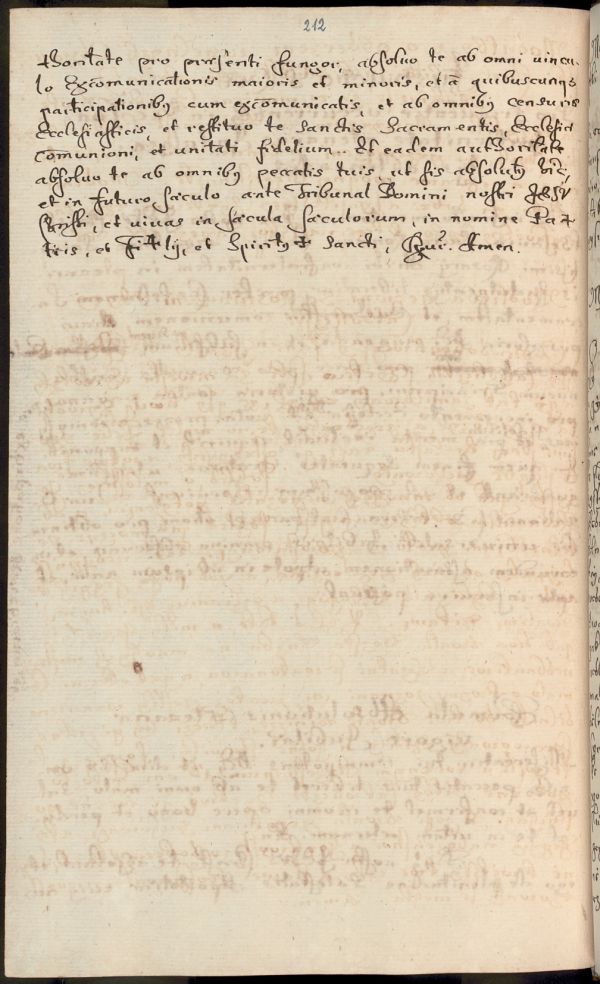 212
thoritate pro praesenti fungor, absoluo te ab omni uincu-
lo Excōmunicationis maioris et minoris, et ā quibuscunq;
participationibꝰ cum excōmunicatis, et ab omnibꝰ censuris
Ecclesiasticis, et restituo te Sanctis Sacramentis, Ecclesiae
Cōmunioni, et unitati fidelium. Et eadem authoritate
absoluo te ab omnibꝰ peccatis tuis, ut sis absolutꝰ hic,
et in futuro saeculo ante Tribunal Domini nostri JESV
Christi, et uiuas in saecula saeculorum, in nomine Pa ✝
tris, et Fi ✝ lij, et Spiritꝰ ✝ Sancti, Amen.